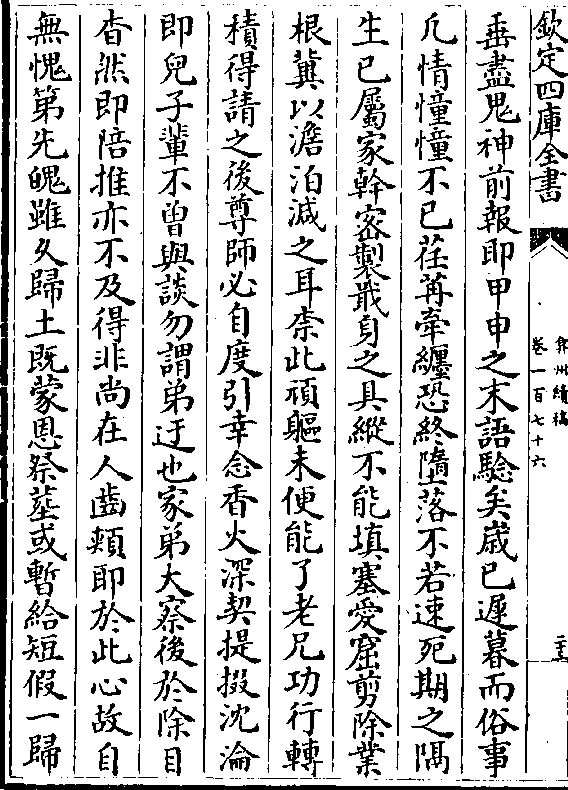 欽定四庫全書
弇州續稿
卷一百七十六
垂盡鬼神前報即甲申之末語驗矣歲已遲暮而俗事
凡情憧憧不已荏苒牽纏恐終墮落不若速死期之隅
生已屬家幹宻製戢身之具縱不能填塞愛窟剪除業
根冀以澹泊滅之耳柰此頑軀未便能了老兄功行轉
積得請之後尊師必自度引幸念香火深契提掇沈淪
即兒子輩不曾與談勿謂弟迂也家弟大察後於除目
杳然即陪推亦不及得非尚在人齒頰即於此心故自
無愧第先魄雖久歸土既蒙恩祭塟或暫給短假一歸